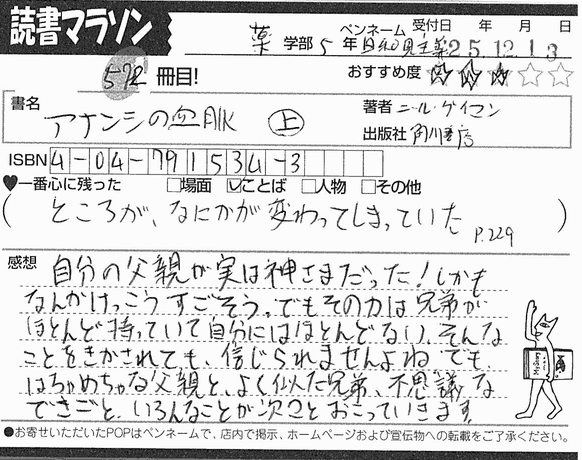 読書マラソン
受付日 年 月 日
薬 学部 5 年 ペンネーム 日和見主義 25.12.13
572 冊目!
おすすめ度 ★★★☆☆
書名
アナンシの血脈 上
著者 ニール・ゲイマン
出版社 角川書店
ISBN 4-04-791534-3
♥一番心に残った □場面 ☑ことば □人物 □その他
(ところが、なにかが変わってしまっていた P.229)
感想
自分の父親が実は神さまだった!しかも
なんかけっこうすごそう。でもその力は兄弟が
ほとんど持っていて自分にはほとんどない、そんな
ことをきかされても、信じられませんよね でも
はちゃめちゃな父親と、よく似た兄弟、不思議な
できごと、いろんなことが次々とおこっていきます
●お寄せいただいたPOPはペンネームで、店内で掲示、ホームページおよび宣伝物への転載をご了承ください。